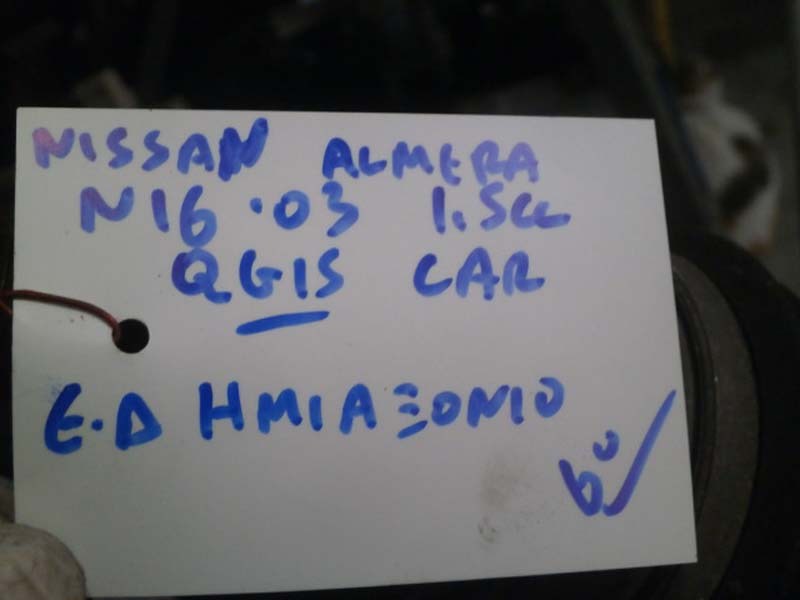 NISSAN ALMERA
N16 '03 1.5cc
QG15 CAR
Ε.Δ ΗΜΙΑΞΟΝΙΟ